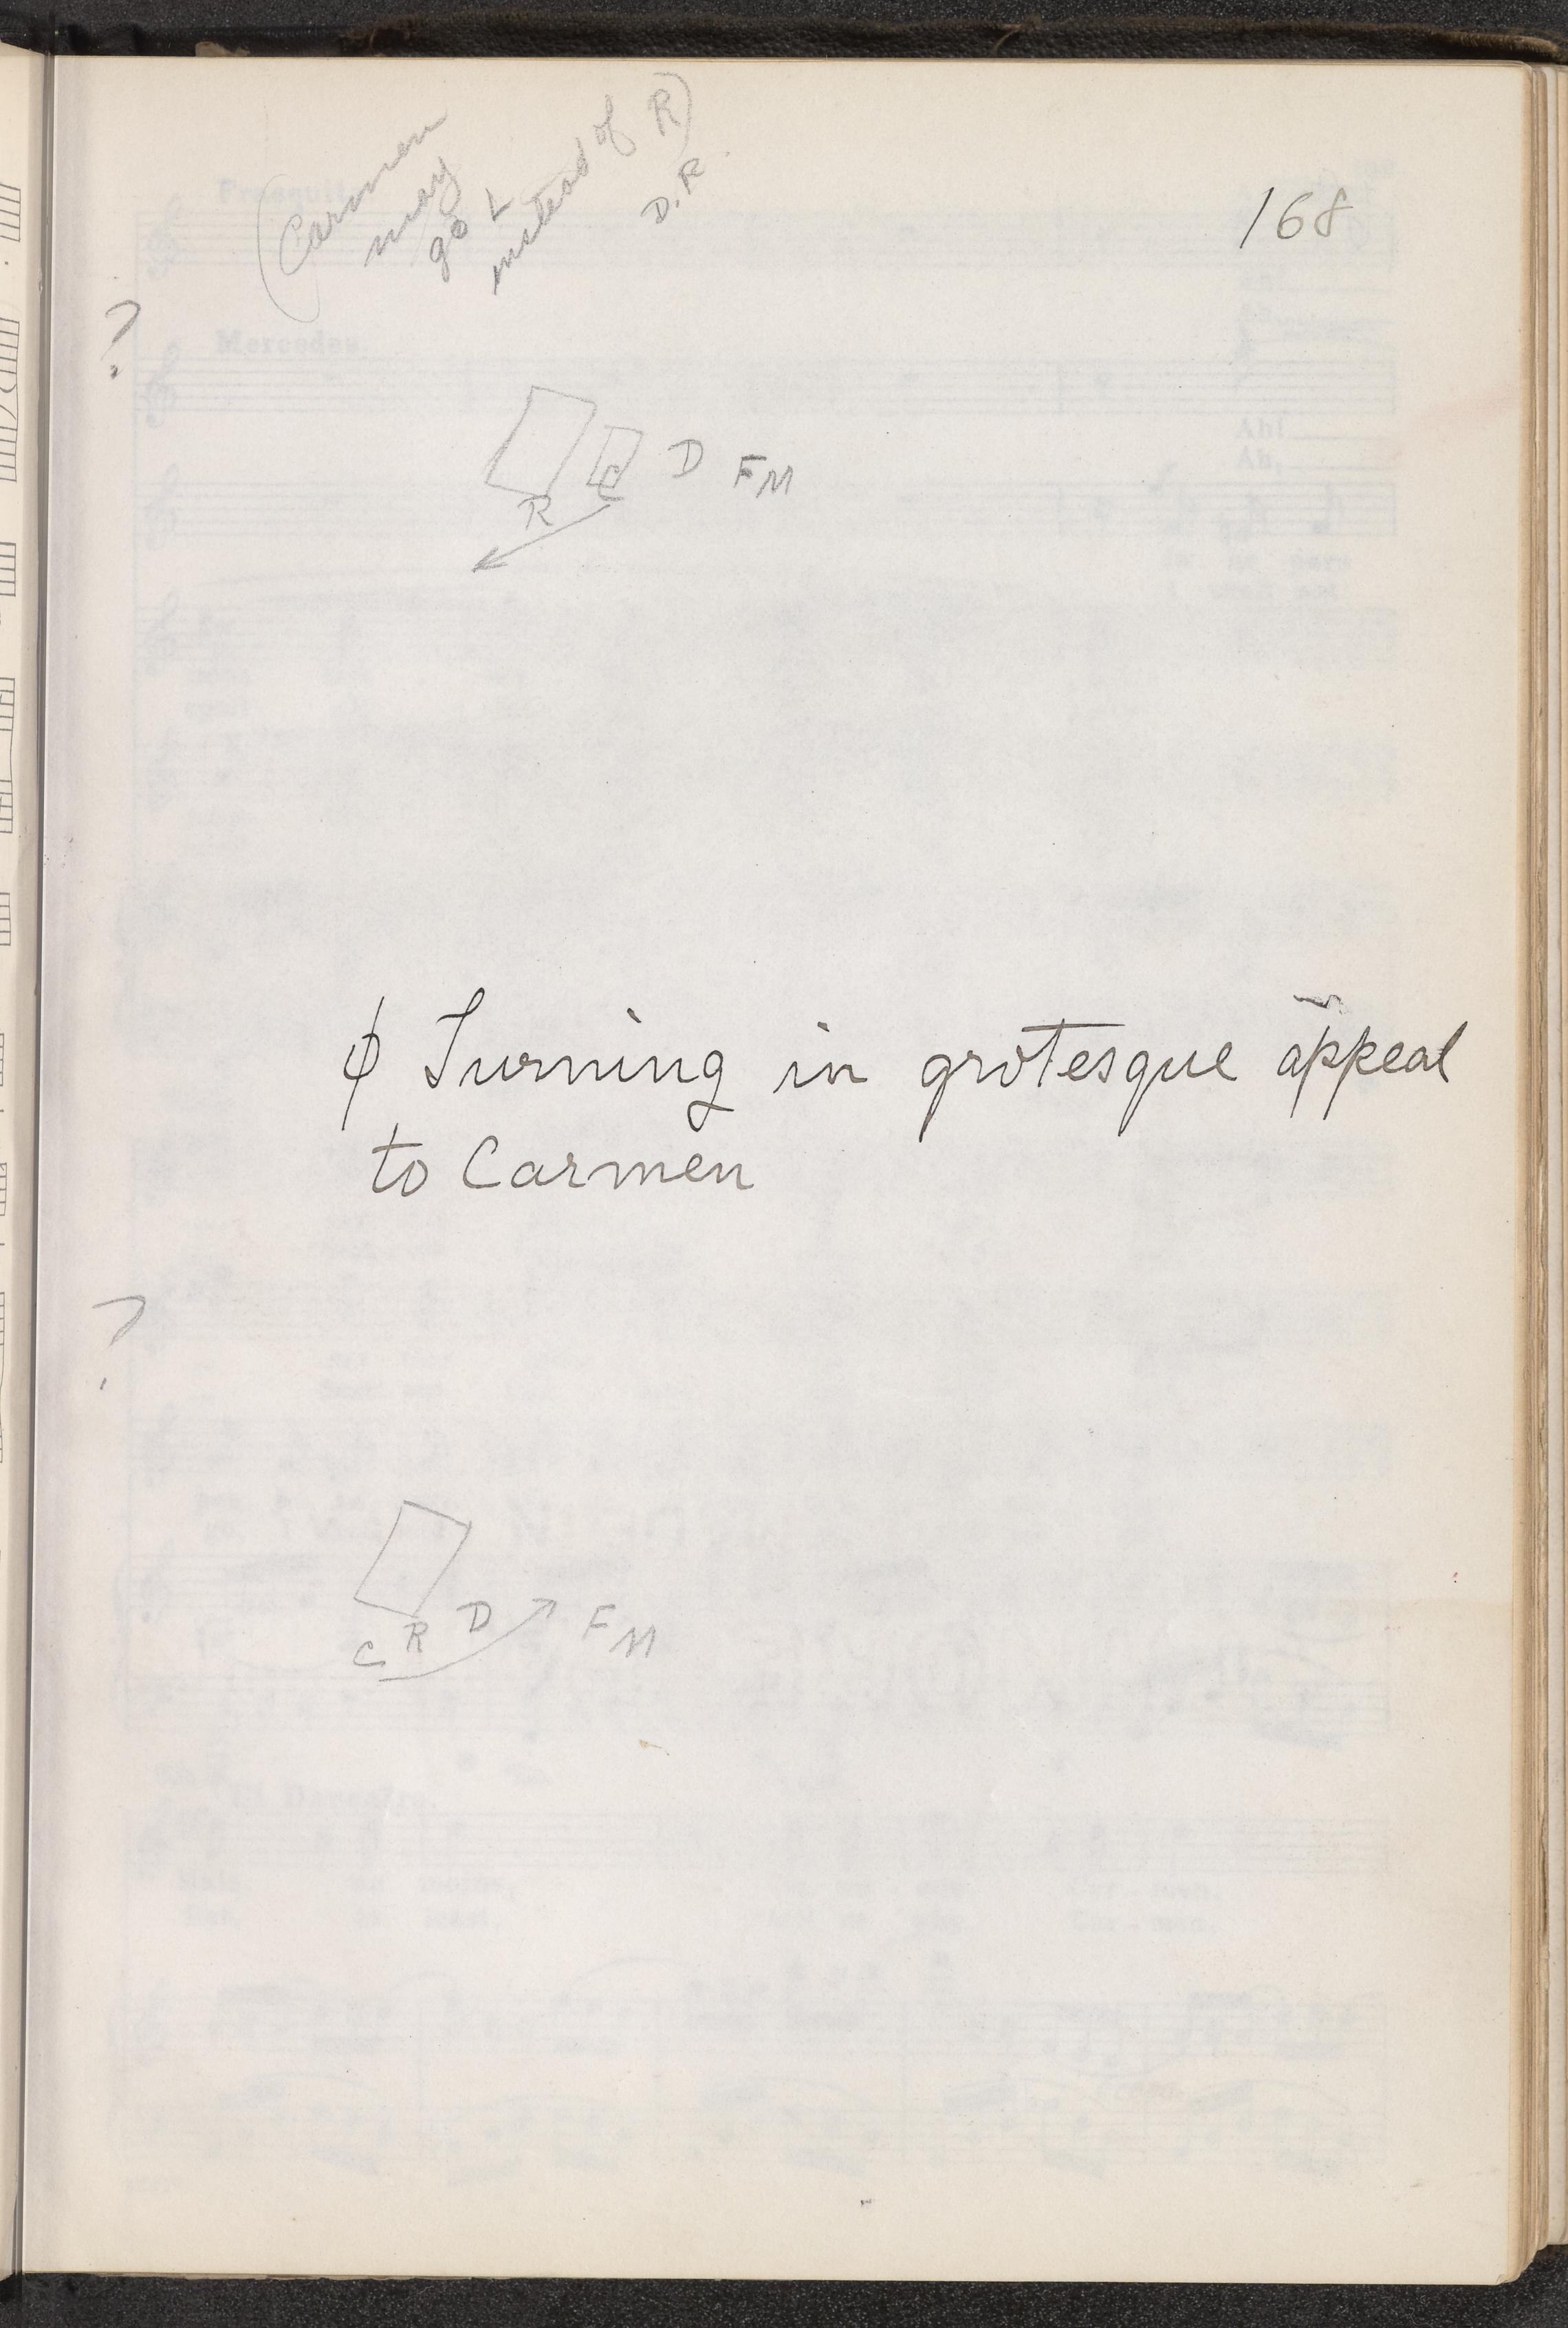 (Carmen
may
go L
instead of R)
D.R.
168
?
C D F M
R
φ Turning in grotesque appeal
to Carmen
?
C R D F M